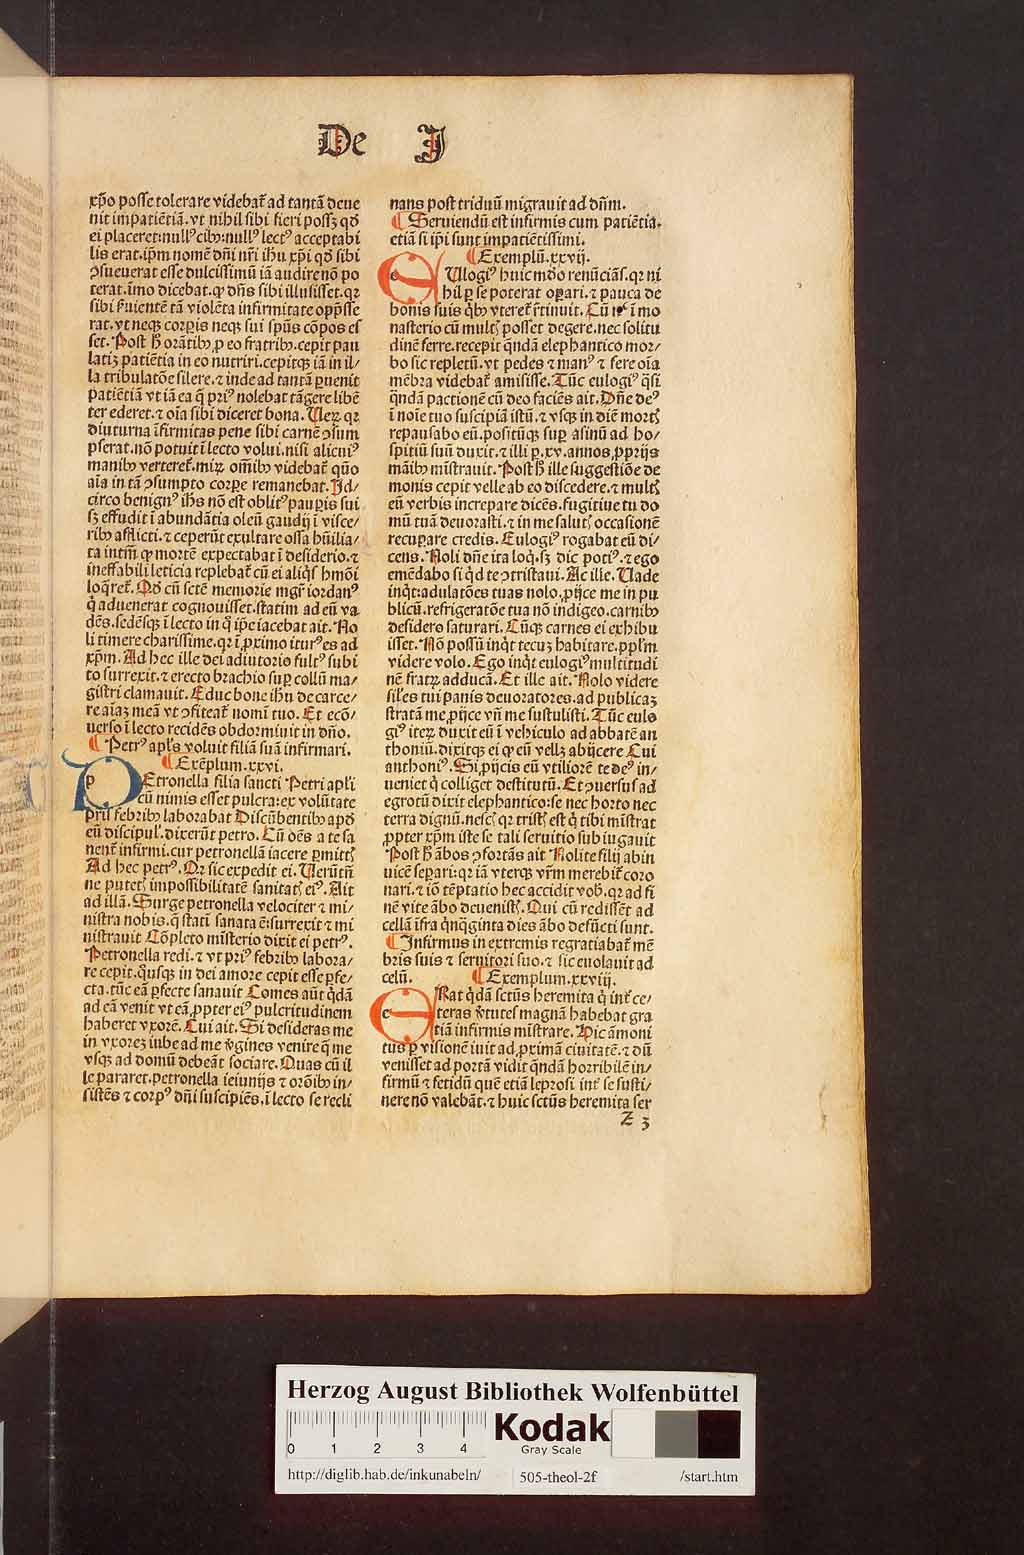 De J
xp̄o posse tolerare videbat᷑ ad tantā deue
nit impatiētiā. vt nihil sibi fieri possꝫ qđ
ei placeret: nullꝰ cibꝰ: nullꝰ lectꝰ acceptabi
lis erat. ip̄m nomē dñi nr̄i ih̄u xp̄i qđ sibi
ꝯsueuerat esse dulcissimū iā audire nō po
terat. īmo dicebat. ꝙ dñs sibi illusisset. qꝛ
sibi ẜuientē tā violēta infirmitate opp̄sse
rat. vt neqꝫ corꝑis neqꝫ sui sp̄us cōpos es
set. Post h̄ orātibꝰ ꝓ eo fratribꝰ. cepit pau
latiꝫ patiētia in eo nutriri. cepitqꝫ iā in il/
la tribulatōe silere. ⁊ inde ad tantā ꝑuenit
patiētiā vt iā ea q̄ priꝰ nolebat tāgere libē
ter ederet. ⁊ oīa sibi diceret bona. Ueꝝ qꝛ
diuturna īfirmitas pene sibi carnē ꝯsum
pserat. nō potuit ī lecto volui. nisi alicuiꝰ
manibꝰ verteret᷑. miꝝ om̄ibꝰ videbat᷑ quō
aīa in tā ꝯsumpto corꝑe remanebat. Id/
circo benignꝰ ih̄s nō est oblitꝰ pauꝑis sui
sꝫ effudit ī abundātia oleū gaudij ī visce/
ribꝰ afflicti. ⁊ ceperūt exultare ossa hūilia/
ta intm̄ ꝙ mortē expectabat ī desiderio. ⁊
ineffabili leticia replebat᷑ cū ei aliqͥs hmōi
loq̄ret᷑. Qđ cū sctē memorie mgr̄ iordanꝰ
qͥ aduenerat cognouisset. statim ad eū va
dēs. sedēsqꝫ ī lecto in qͦ ip̄e iacebat ait. No
li timere charissime. qꝛ ī ꝓximo iturꝰ es ad
xp̄m. Ad hec ille dei adiutorio fultꝰ subi
to surrexit. ⁊ erecto brachio suꝑ collū ma/
gistri clamauit. Educ bone ih̄u de carce/
re aīaꝫ meā vt ꝯfiteat᷑ nomī tuo. Et ecō/
uerso ī lecto recidēs obdormiuit in dn̄o.
¶ Petrꝰ apl̄s voluit filiā suā infirmari.
¶ Exēplum. xxvi.
p Etronella filia sancti Petri apl̄i
cū nimis esset pulcra: ex volūtate
pr̄is febribꝰ laborabat Discūbentibꝰ apđ
eū discipul᷒. dixerūt petro. Cū oēs a te sa
nent᷑ infirmi. cur petronellā iacere ꝑmittꝭ
Ad hec petrꝰ. Qꝛ sic expedit ei. Uerūtn̄
ne putetꝭ impossibilitatē sanitatꝭ eiꝰ. Ait
ad illā. Surge petronella velociter ⁊ mi/
nistra nobis. q̄ statī sanata ē: surrexit ⁊ mi
nistrauit Cōpleto mīsterio dixit ei petrꝰ.
Petronella redi. ⁊ vt priꝰ febribꝰ labora/
re cepit. qͥusqꝫ in dei amore cepit esse ꝑfe/
cta. tūc eā ꝑfecte sanauit Comes aūt qͥdā
ad eā venit vt eā ꝓpter eiꝰ pulcritudinem
haberet vxorē. Cui ait. Si desideras me
in vxoreꝫ iube ad me v̄gines venire q̄ me
vsqꝫ ad domū debeāt sociare. Quas cū il
le pararet. petronella ieiunijs ⁊ orōibꝰ in/
sistēs ⁊ corpꝰ dn̄i suscipiēs. ī lecto se recli
nans post triduū migrauit ad dn̄m.
¶ Seruiendū est infirmis cum patiētia.
etiā si ip̄i sunt impatiētissimi.
¶ Exemplū. xxvij.
e Ulogiꝰ huic mōdo renūciās. qꝛ ni
hil ꝑ se poterat oꝑari. ⁊ pauca de
bonis suis qͥbꝰ vteret᷑ r̄tinuit. Cū ī mo
nasterio cū multꝭ posset degere. nec solitu
dinē ferre. recepit quēdā elephantico mor/
bo sic repletū. vt pedes ⁊ manꝰ ⁊ fere oīa
mēbra videbat᷑ amisisse. Tūc eulogiꝰ qͣsi
qͣndā pactionē cū deo faciēs ait. Dn̄e deꝰ
ī noīe tuo suscipiā istū. ⁊ vsqꝫ in diē mortꝭ
repausabo eū. positūqꝫ suꝑ asinū ad ho/
spitiū suū duxit. ⁊ illi ꝑ. xv. annos. ꝓprijs
māibꝰ mīstrauit. Post h̄ ille suggestiōe de
monis cepit velle ab eo discedere. ⁊ multꝭ
eū verbis increpare dicēs. fugitiue tu do
mū tuā deuorasti. ⁊ in me salutꝭ occasionē
recuꝑare credis. Eulogiꝰ rogabat eū di/
cens. Noli dn̄e ita loqͥ. sꝫ dic potiꝰ. ⁊ ego
emēdabo si qͥd te ꝯtristaui. Ac ille. Uade
inqͥt: adulatōes tuas nolo. ꝓijce me in pu
blicū. refrigeratōe tua nō indigeo. carnibꝰ
desidero saturari. Cūqꝫ carnes ei exhibu
isset. Nō possū inqͥt tecuꝫ habitare. ppl̄m
videre volo. Ego inqͥt eulogiꝰ multitudi
nē fratꝝ adducā. Et ille ait. Nolo videre
sil̄es tui panis deuoratores. ad publicaꝫ
stratā me. ꝓijce vn̄ me sustulisti. Tūc eulo
giꝰ iteꝝ duxit eū ī vehiculo ad abbatē an
thoniū. dixitqꝫ ei ꝙ eū vellꝫ abijcere Cui
anthoniꝰ. Si ꝓijcis eū vtiliorē te deꝰ in/
ueniet qͥ colliget destitutū. Et ꝯuersus ad
egrotū dixit elephantico: se nec horto nec
terra dignū. nescꝭ qꝛ tristꝭ est qͥ tibi mīstrat
ꝓpter xp̄m iste se tali seruitio subiugauit
Post h̄ ābos ꝯfortās ait Nolite filij abin
uicē seꝑari: qꝛ iā vterqꝫ vr̄m merebit᷑ coro
nari. ⁊ iō tēptatio hec accidit vob̄. qꝛ ad fi
nē vite ābo deuenistꝭ. Qui cū redissēt ad
cellā īfra qͥnqͣginta dies ābo defūcti sunt.
¶ Infirmus in extremis regratiabat᷑ mē
bris suis ⁊ seruitori suo. ⁊ sic euolauit ad
celū. ¶ Exemplum. xxviij.
e Rat qͥdā sctūs heremita qͥ int᷑ ce/
teras v̄tutes magnā habebat gra
tiā infirmis mīstrare. Hic āmoni
tus ꝑ visionē iuit ad ꝓximā ciuitatē. ⁊ dū
venisset ad portā vidit quēdā horribilē in/
firmū ⁊ fetidū quē etiā leprosi int᷑ se susti/
nere nō valebāt. ⁊ huic sctūs heremita ser
Z 3
Herzog August Bibliothek Wolfenbüttel
0 1 2 3 4
Kodak
Gray Scale
http://diglib.hab.de/inkunabeln/ 505-theol-2f /start.htm